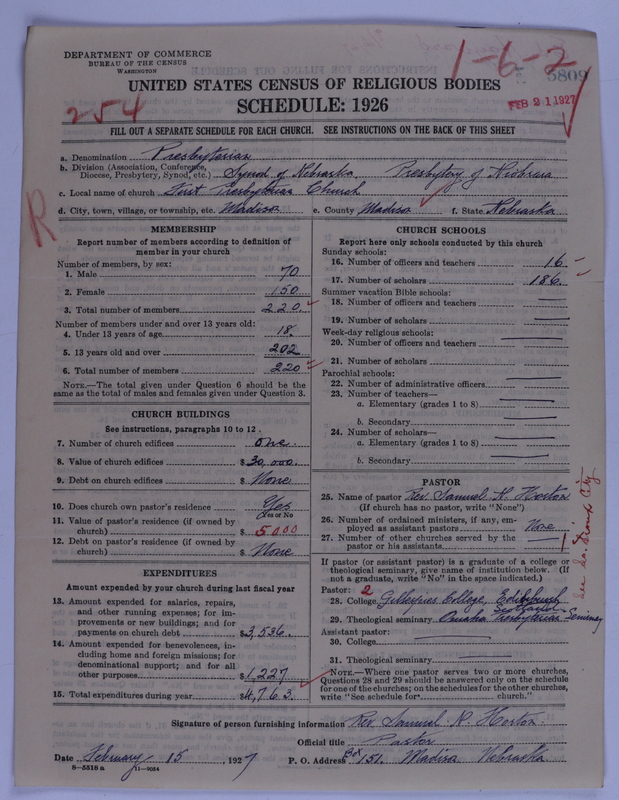 DEPARTMENT OF COMMERCE
BUREAU OF THE CENSUS
WASHINGTON
1-6-2
5809
UNITED STATES CENSUS OF RELIGIOUS BODIES
SCHEDULE: 1926
254
FEB 21 1927
FILL OUT A SEPARATE SCHEDULE FOR EACH CHURCH. SEE INSTRUCTIONS ON THE BACK OF THIS SHEET
a. Denomination Presbyterian
b. Division (Association, Conference, Diocese, Presbytery, Synod, etc.) Synod of Nebraska Presbytery of Niobrara
c. Local name of church First Presbyterian Church
d. City, town, village, or township, etc. Madison e. County Madison f. State Nebraska
R
MEMBERSHIP
Report number of members according to definition of
member in your church
Number of members, by sex:
1. Male 70
2. Female 150
3. Total number of members 220
Number of members under and over 13 years old:
4. Under 13 years of age 18
5. 13 years old and over 202
6. Total number of members 220
NOTE.—The total given under Question 6 should be the
same as the total of males and females given under Question 3.
CHURCH BUILDINGS
See instructions, paragraphs 10 to 12.
7. Number of church edifices one
8. Value of church edifices $30,000
9. Debt on church edifices $ None
10. Does church own pastor's residence Yes
(Yes or No)
11. Value of pastor's residence (if owned by
church) $ 5000
12. Debt on pastor's residence (if owned by
church) $ None
EXPENDITURES
Amount expended by your church during last fiscal year
13. Amount expended for salaries, repairs,
and other running expenses; for im-
provements or new buildings; and for
payments on church debt $3,536
14. Amount expended for benevolences, in-
cluding home and foreign missions; for
denominational support; and for all
other purposes $1,227
15. Total expenditures during year $4,763
CHURCH SCHOOLS
Report here only schools conducted by this church
Sunday schools:
16. Number of officers and teachers 16
17. Number of scholars 186
Summer vacation Bible schools:
18. Number of officers and teachers
19. Number of scholars
Week-day religious schools:
20. Number of officers and teachers
21. Number of scholars
Parochial schools:
22. Number of administrative officers
23. Number of teachers—
a. Elementary (grades 1 to 8)
b. Secondary
24. Number of scholars—
a. Elementary (grades 1 to 8)
b. Secondary
PASTOR
25. Name of pastor Rev. Samuel R. Horton
(If church has no pastor, write "None")
26. Number of ordained ministers, if any, em-
ployed as assistant pastors None
27. Number of other churches served by the
pastor or his assistants 1
If pastor (or assistant pastor) is a graduate of a college or
theological seminary, give name of institution below. (If
not a graduate, write "No" in the space indicated.)
Pastor: 2
28. College Edinburgh
Scotland
29. Theological seminary Omaha Presbyterian Seminary
Assistant pastor:
30. College
31. Theological seminary
NOTE.—Where one pastor serves two or more churches,
Questions 28 and 29 should be answered only on the schedule
for one of the churches; on the schedules for the other churches,
write "See schedule for church."
Signature of person furnishing information Rev. Samuel R. Horton
Official title Pastor
Date February 15, 1927 P. O. Address Box 151. Madison Nebraska
8—5518 a 11—9054